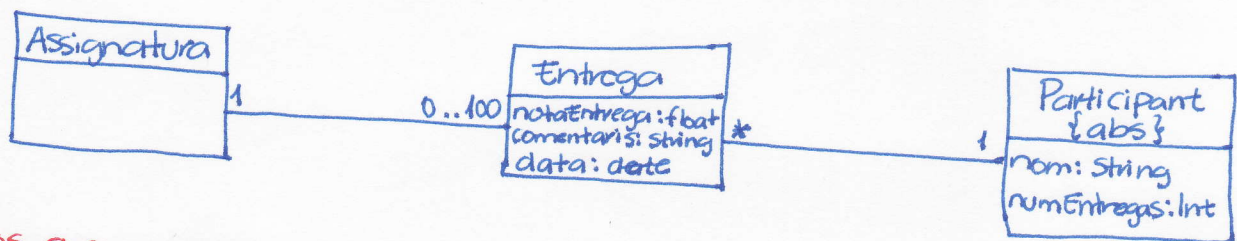 Assignatura
1
0..100
Entrega
notaEntrega: float
comentaris: string
data: date
*
1
Participant
{abs}
nom: String
numEntregas: Int